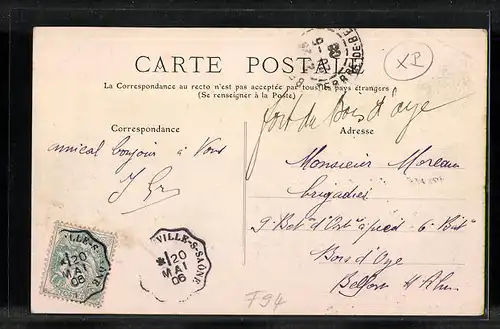 CARTE POSTALE
La Correspondance au recto n'est pas acceptée par tous les pays étrangers
(Se renseigner à la Poste)
XP
fort du Bois d'oye
Correspondance
Adresse
amical bonjour à Vous
Monsieur Moreau
brigadier
9e Bat d'Art à pied 6e Bie
Bois d'Oye
Belfort Ht Rhin
VILLE-S-SAÔNE
20
MAI
06
VILLE-S-SAÔNE
20
MAI
06
F94